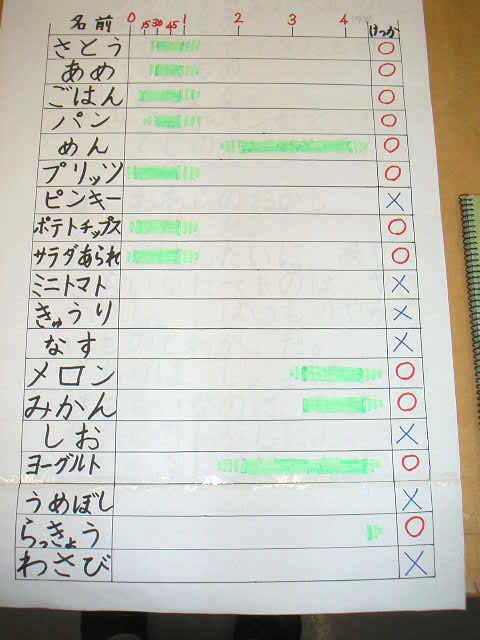 名前 0 15 30 45 1 2 3 4 けっか
さとう ○
あめ ○
ごはん ○
パン ○
めん ○
プリッツ ○
ピンキー ×
ポテトチップス ○
サラダあられ ○
ミニトマト ×
きゅうり ×
なす ×
メロン ○
みかん ○
しお ×
ヨーグルト ○
うめぼし ×
らっきょう ○
わさび ×